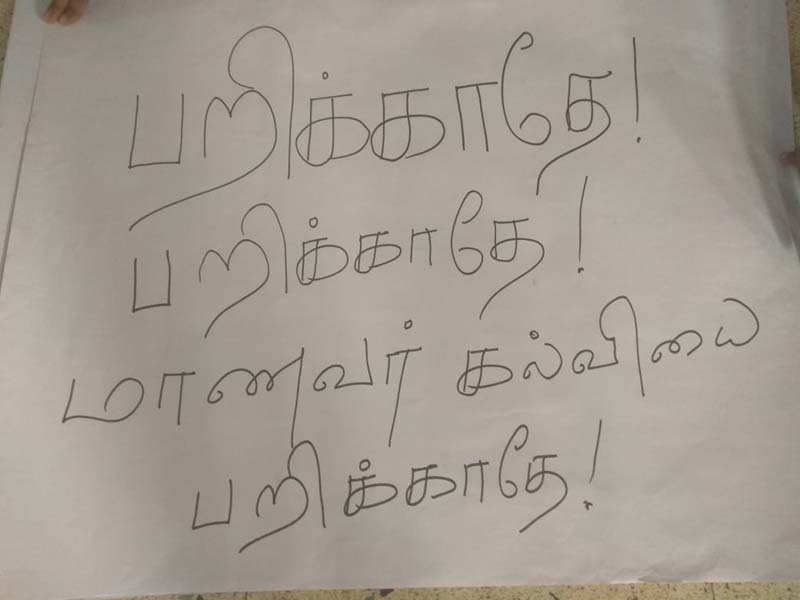 பறிக்காதே!
பறிக்காதே!
மாணவர் கல்வியை
பறிக்காதே!